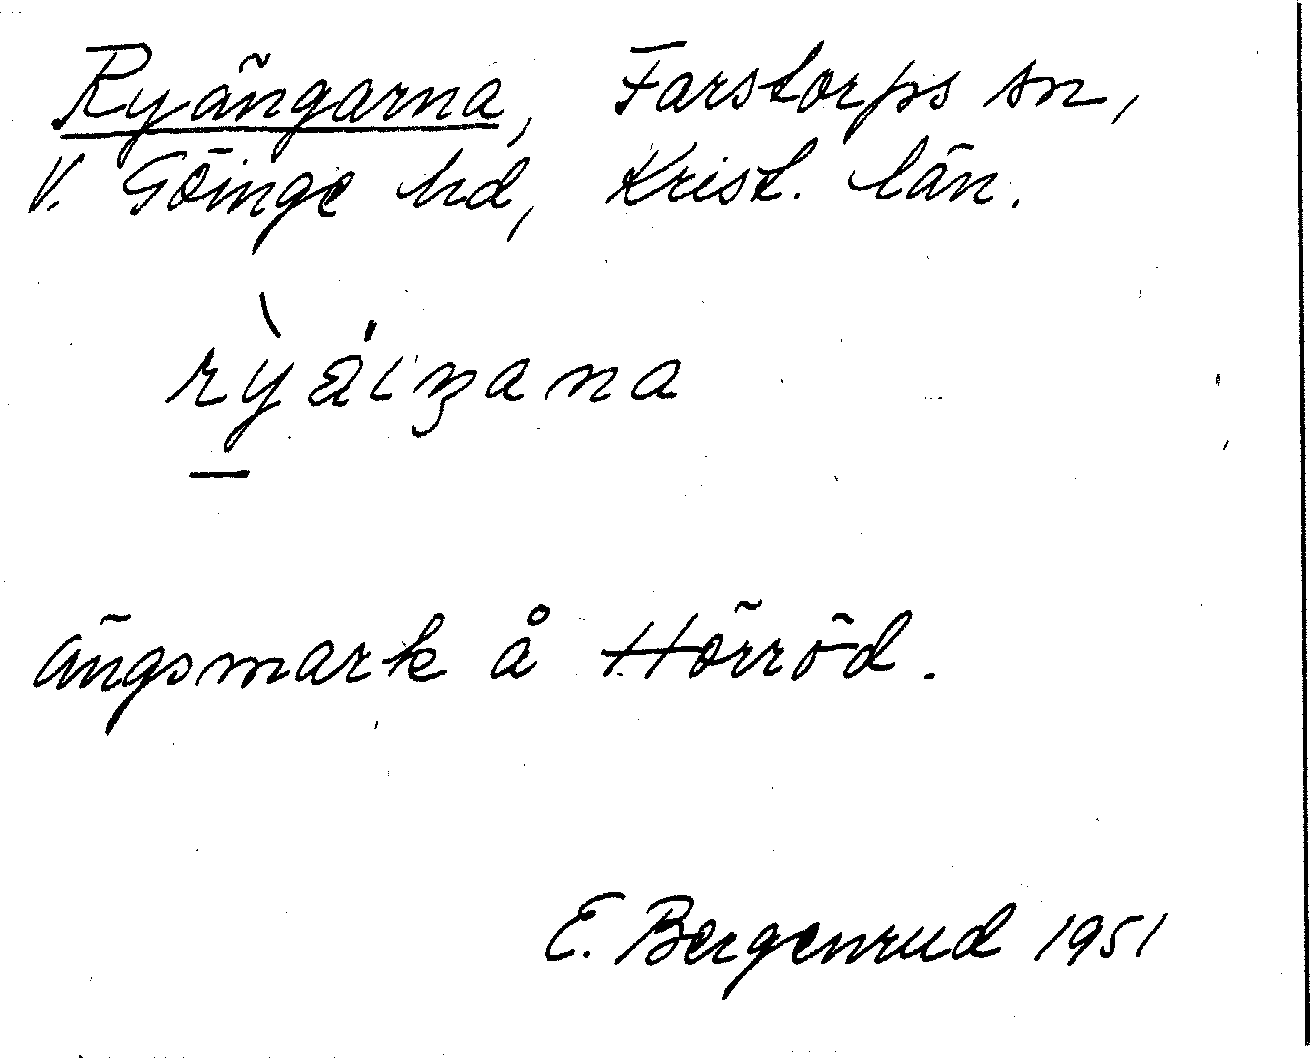 Ryängarna, Farstorps sn,
V. Göinge hd, Krist. län.
rỳáiŋana
ängsmark å Hörröd.
E. Bergenrud 1951